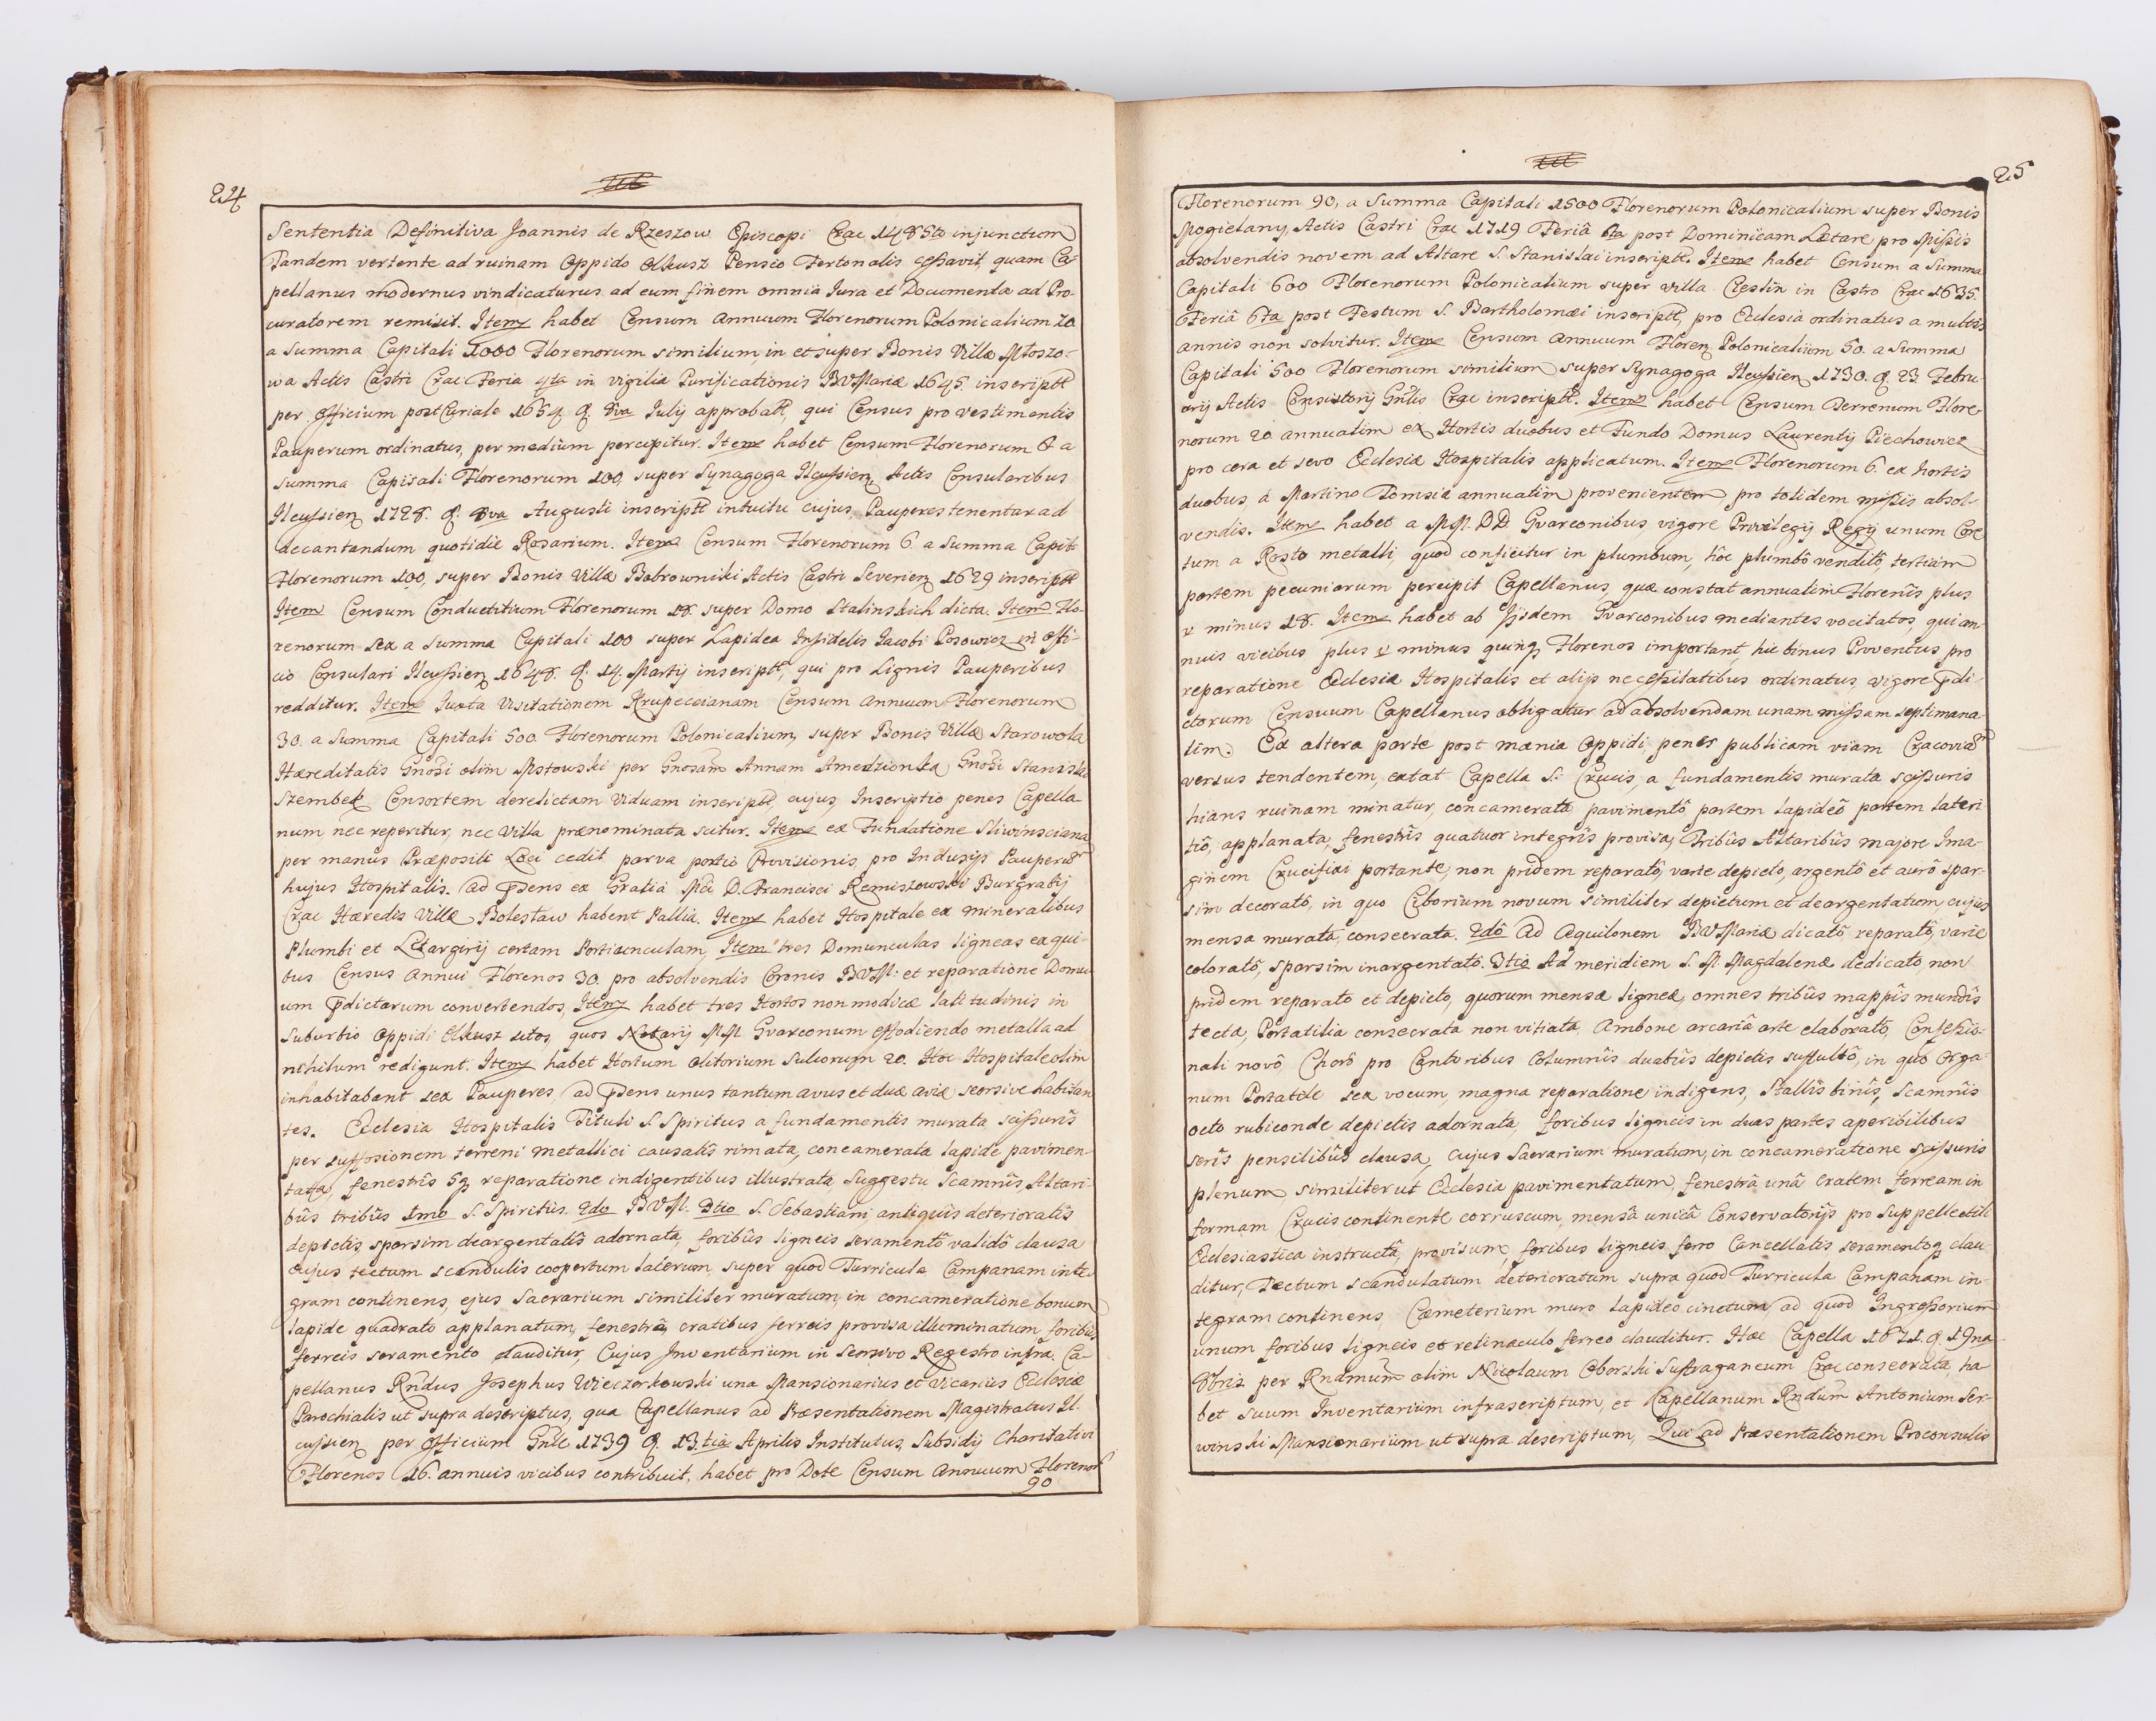 24
Sententia Definitiva Joannis de Rzeszow Episcopi Crac 1485to injunctum
Tandem vertente ad ruinam Oppido Olkusz Pensio Fertonalis cessavit, quam Ca-
pellanus modernus vindicaturus ad eum finem omnia Iura et Documenta ad Pro-
curatorem remisit. Item habet Censum Annuum Florenorum Polonicalium 70
a Summa Capitali 1000 Florenorum similium, in et super Bonis Villæ Młoszo-
wa Actis Castri Crac Feria 4ta in vigilia Purificationis BVMariæ 1645. inscriptt
per Officium post Curiale 1654 d. 8va Iulij approbatt, qui Census pro vestimentis
Pauperum ordinatus, per medium percipitur. Item habet Censum Florenorum 8 a
summa Capitali Florenorum 100, super Synagoga Ilcussien, Actis Consularibus
Ilcussien 1728. d. 8va Augusti inscriptt intuitu cujus, Pauperes tenentur ad
decantandum quotidie Rosarium. Item Censum Florenorum 6 a Summa Capit:
Florenorum 100, super Bonis Villæ Bobrowniki Actis Castri Severien 1629 inscriptt
Item Censum Conductitium Florenorum 18 super Domo Stalinskich dicta. Item Flo-
renorum sex a summa Capitali 100 super Lapidea Infidelis Iacobi Posowicz in Offi-
cio Consulari Ilcussien 1648. d. 14. Martij inscriptt, qui pro Lignis Pauperibus
redditur. Item Iuxta Visitationem Krupeccianam Censum Annuum Florenorum
30. a Summa Capitali 500 Florenorum Polonicalium, super Bonis Villæ Starowola
Hæreditatis Gnosi olim Mstowski per Gnosam Annam Amedzionka Gnosi Stanislai
Szembek Consortem derelictam Viduam inscriptt, cujus Inscriptio penes Capella-
num nec reperitur, nec Villa prænominata scitur. Item ex Fundatione Sliwinsciana
per manus Præpositi Loci cedit parva portio Provisionis pro Indusijs Pauperum
hujus Hospitalis. ad pdens ex Gratia Mci D. Francisci Remiszowski Burgrabij
Crac Hæredis Villæ Bolesław habent Pallia. Item habet Hospitale ex mineralibus
Plumbi et Litargirij certam Portiunculam, Item tres Domunculas ligneas ex qui-
bus Census Annui Florenos 30. pro absolvendis Coronis BVM. et reparatione Domu
um pdictarum convertendos, Item habet tres Hortos non modicæ latitudinis in
Suburbio Oppidi Olkusz sitos, quos Notarij MM. Gvarconum effodiendo metalla ad
nihilum redigunt. Item habet Hortum Olitorium Sulcorum 20. Hoc Hospitale olim
inhabitabant sex Pauperes, ad pdens unus tantum avus et duæ aviæ seorsive habitan
tes. Ecclesia Hospitalis Tituli S. Spiritus a fundamentis murata scissuris
per suffosionem terreni metallici causatis rimata, concamerata lapide pavimen-
tata, fenestris 5q reparatione indigentibus illustrata, Suggestu Scamnis, Altari-
bus tribus 1mo S. Spiritus. 2do BVM. 3tio S. Sebastiani, antiquis deterioratis
depictis, sparsim deargentatis adornata, foribus ligneis seramento valido clausa
cujus tectum scandulis coopertum laterum, super quod Turricula Campanam inte
gram continens, ejus Sacrarium similiter muratum, in concameratione bonum
lapide quadrato applanatum, fenestra cratibus ferreis provisa illuminatum foribus
ferreis seramento clauditur, Cujus Inventarium in Seorsivo Regestro infra. Ca-
pellanus Rndus Josephus Wieczorkowski una Mansionarius et Vicarius Ecclesiæ
Parochialis ut supra descriptus, qua Capellanus ad Præsentationem Magistratus Il-
cussien per Officium Gnle 1739 d. 13.tia Aprilis Institutus, Subsidij Charitativi
Florenos 16. annuis vicibus contribuit, habet pro Dote Censum Annuum Florenor
90
25
Florenorum 90, a Summa Capitali 1500 Florenorum Polonicalium super Bonis
Mogielany, Actis Castri Crac 1719 Feriâ 6ta post Dominicam Lætare pro Missis
absolvendis novem ad Altare S. Stanislai inscriptt. Item habet Censum a Summa
Capitali 600 Florenorum Polonicalium super villa Cieslin in Castro Crac 1635.
Feriâ 6ta post Festum S. Bartholomæi inscriptt, pro Ecclesia ordinatus a multis
annis non solvitur. Item Censum Annuum Floren Polonicalium 50. a Summa
Capitali 500 Florenorum similium super Synagoga Ilcussien 1730. d. 23 Febru-
arij Actis Consistorij Gnlis Crac inscriptt. Item habet Censum Terrenum Flore-
norum 20 annuatim ex Hortis duobus et Fundo Domus Laurentij Piechowicz
pro cera et sevo Ecclesiæ Hospitalis applicatum. Item Florenorum 6. ex hortis
duobus, a Martino Tomsia annuatim provenientem pro totidem missis absol-
vendis. Item habet a MM. DD Gvarconibus, vigore Privilegij Regij unum Cre
tum a Rosto metalli, quod conficitur in plumbum, hoc plumbô venditô, tertiam
portem pecuniarum percipit Capellanus, quæ constat annuatim Florenis plus
v minus 18. Item habet ab Ijsdem Gvarconibus mediantes vocitatos, qui an-
nuis vicibus plus v minus quinq Florenos important, hic binus Proventus pro
reparatione Ecclesiæ Hospitalis et alijs necessitatibus ordinatus, vigore pdi-
ctorum Censuum Capellanus obligatur ad absolvendam unam missam septimana
tim. Ex altera parte post mænia Oppidi penes publicam viam Cracoviam
versus tendentem, extat Capella S. Crucis, a fundamentis murata scissuris
hians ruinam minatur, concamerata pavimentô partem lapideô partem lateri-
tiô, applanata, fenestris quatuor integris provisa, Tribus Altaribus majore Ima-
ginem Crucifixi portante, non pridem reparatô, varie depicto, argentô et aurô spar-
sim decoratô, in quo Ciborium novum similiter depictum et deargentatum, cujus
mensa murata, consecrata. 2dô ad Aquilonem BVMariæ dicatô reparatô, varie
coloratô, sparsim inargentatô. 3tio Ad meridiem S. M. Magdalenæ dedicato, non
pridem reparato et depicto, quorum mensæ ligneæ, omnes tribus mappis mundis
tectæ, Portatilia consecrata non vitiata, Ambone arcariâ arte elaborato, Confessio-
nali novô, Chorô pro Cantoribus Columnis duabus depictis suffultô, in quo Orga-
num Portatile sex vocum, magna reparatione indigens, Stallis binis, Scamnis
octo rubiconde depictis adornata, foribus ligneis in duas partes aperibilibus
seris pensilibus clausa, cujus Sacrarium muratum, in concameratione scissuris
plenum, similiter ut Ecclesia pavimentatum, fenestrâ unâ Cratem ferream in
formam Crucis continente corruscum, mensâ unicâ Conservatorijs pro Suppellectili
Ecclesiastica instructâ, provisum, foribus ligneis ferro Cancellatis seramentoq clau
ditur, Tectum scandulatum deterioratum supra quod Turricula Campanam in-
tegram continens, Cæmeterium muro lapideo cinctum, ad quod Ingressorium
unum foribus ligneis et retinaculo ferreo clauditur. Hæc Capella 1671. d. 19na
8bris per Rndmum olim Nicolaum Oborski Suffraganeum Crac consecrata, ha
bet suum Inventarium infrascriptum, et Capellanum Rndum Antonium Ser-
winski Mansionarium ut supra descriptum, Qui ad Præsentationem Proconsulis